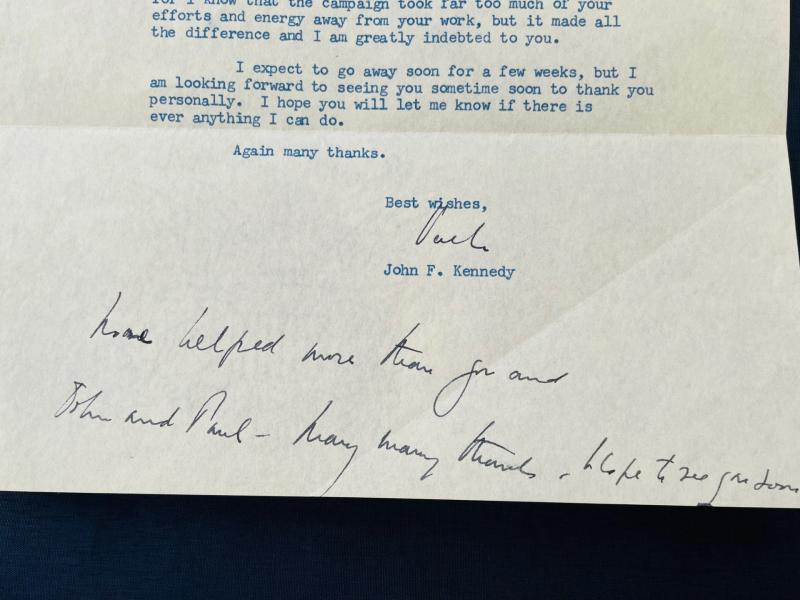 for I know that the campaign took far too much of your
efforts and energy away from your work, but it made all
the difference and I am greatly indebted to you.
I expect to go away soon for a few weeks, but I
am looking forward to seeing you sometime soon to thank you
personally. I hope you will let me know if there is
ever anything I can do.
Again many thanks.
Best wishes,
Jack
John F. Kennedy
None helped more than you and
John and Paul - Many many thanks - hope to see you soon